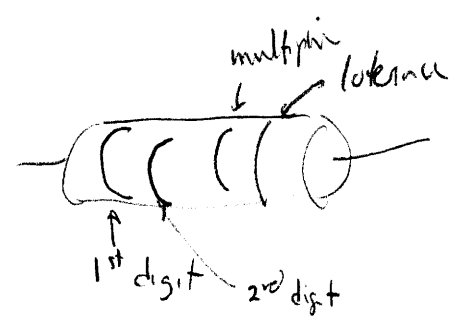 multiplie
tolerance
1st digit
2nd digit